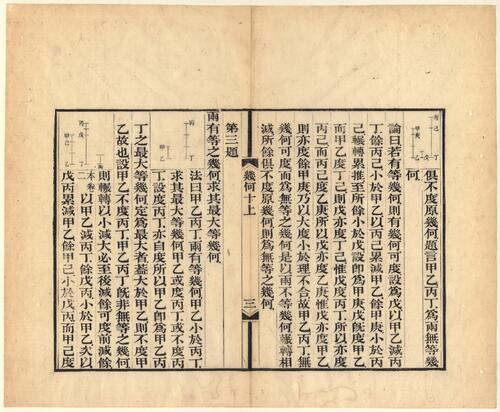 丙己丁
甲庚乙
戊
俱不度原幾何題言甲乙丙丁爲兩無等幾
何
論曰若有等幾何則有幾何可度設爲戊以甲乙減丙
丁餘丙己小於甲乙以丙己累減甲乙餘甲庚小於丙
己輾轉累推至所餘小於戊設卽爲甲庚戊旣度甲乙
而甲乙度丁己則戊亦度丁己惟戊度丙丁所以亦度
丙己而丙己度乙庚所以戊亦度乙庚惟戊亦度甲乙
則亦度餘甲庚乃以大度小於理不合故甲乙丙丁無
幾何可度而爲無等之幾何是以兩不等幾何輾轉相
減所餘俱不度原幾何則爲無等之幾何
幾何十上
三
第三題
兩有等之幾何求其最大等幾何
丙丁
甲乙
法曰甲乙丙丁兩有等幾何甲乙小於丙丁
求其最大等幾何甲乙或度丙丁或不度丙
丁設度丙丁亦自度所以甲乙卽甲乙丙
丁之最大等幾何定爲最大者蓋大於甲乙則不度甲
乙故也設甲乙不度丙丁甲乙丙丁旣非無等之幾何
丙戊丁
甲己乙
則輾轉以小減大必至後減餘可度前減餘
本卷二以甲乙減丙丁餘戊丙小於甲乙次以
戊丙累減甲乙餘甲己小於戊丙而甲己度